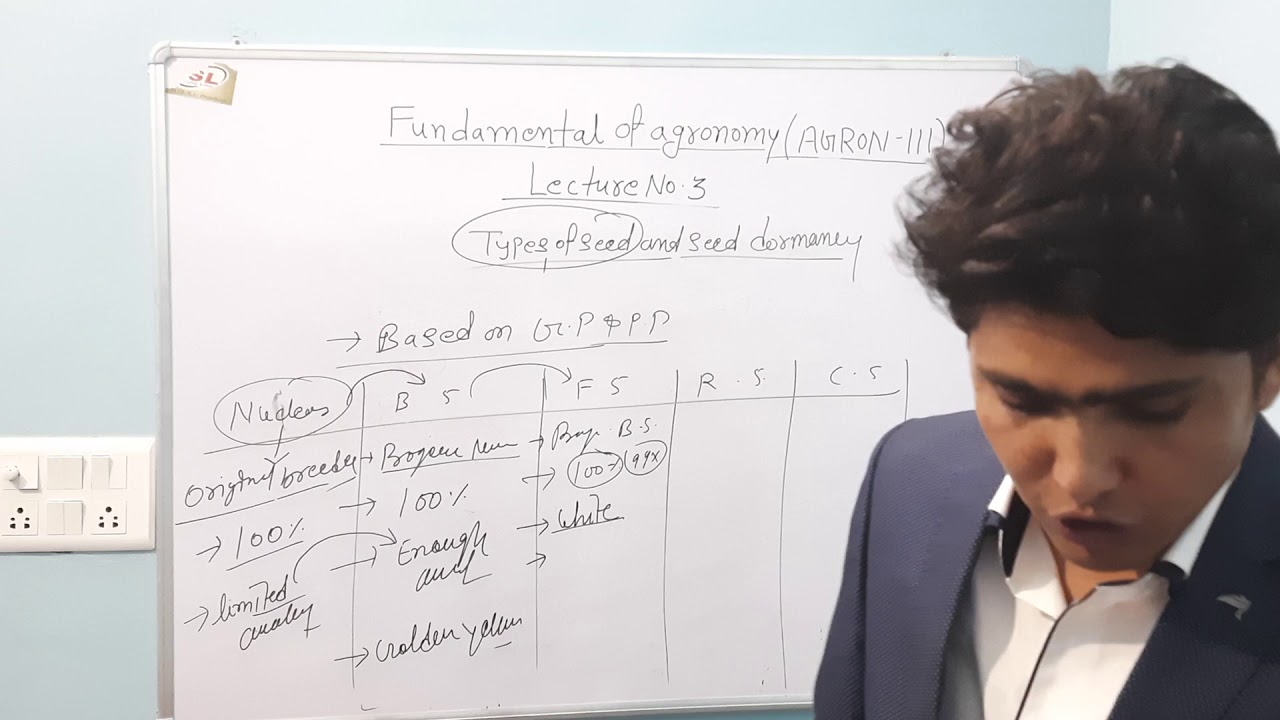 SL
Fundamental of agronomy (AGRON-III)
Lecture No. 3
Types of seed and seed dormancy
→ Based on G.P & P.P
Nucleus
B S
F S
R . S.
C . S
Original breeder
→ 100%
→ limited
→ 100%
→ Enough
→ Golden yellow
B.S.
→ 100% 99%
→ White
→